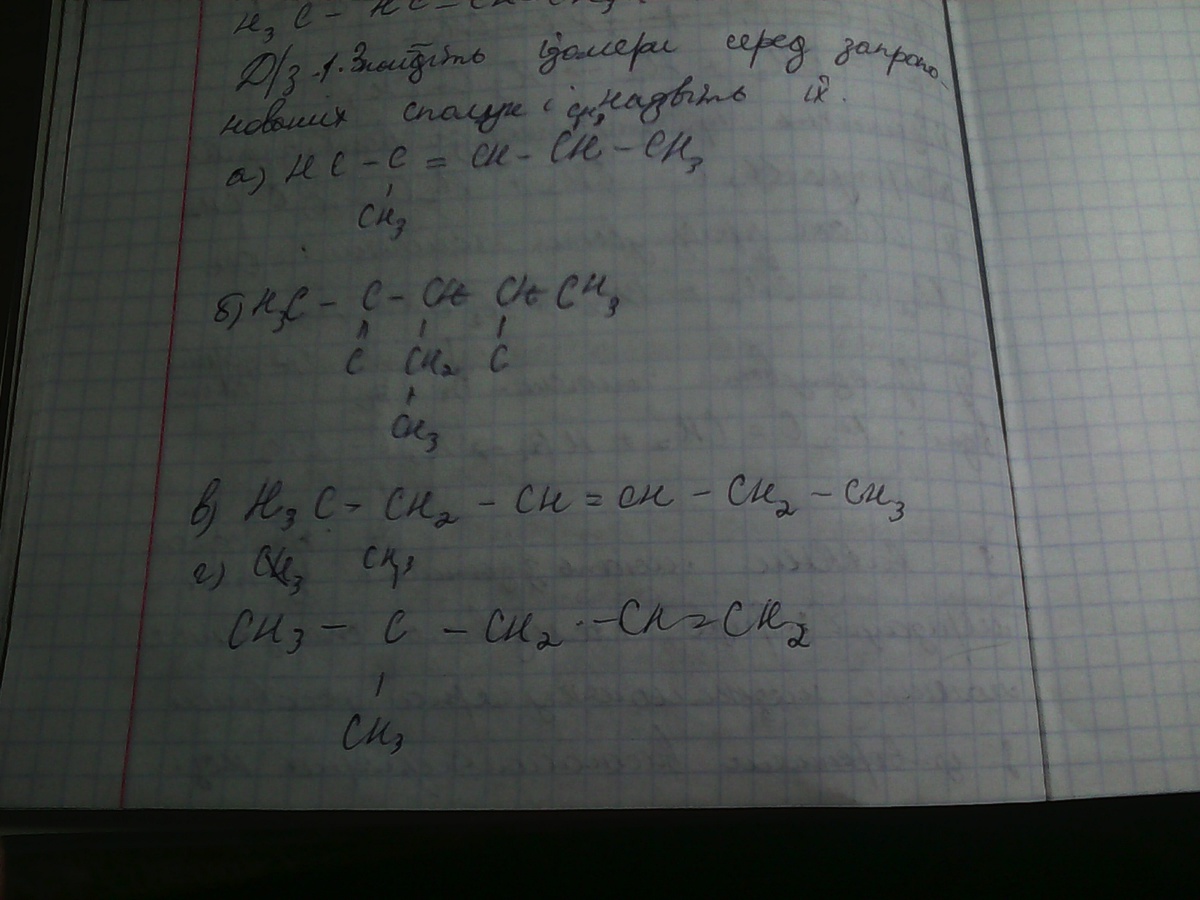 H₃C - HC - CH - CH₃
Д/з. 1. Знайдіть ізомери серед запропо-
нованих сполук і назвіть їх.
CH₃
а) HC - C = CH - CH - CH₃
CH₃
б) H₃C - C - CH CH CH₃
C CH₂ C
CH₃
в) H₃C - CH₂ - CH = CH - CH₂ - CH₃
г) CH₃
CH₃ - C - CH₂ - CH = CH₂
CH₃